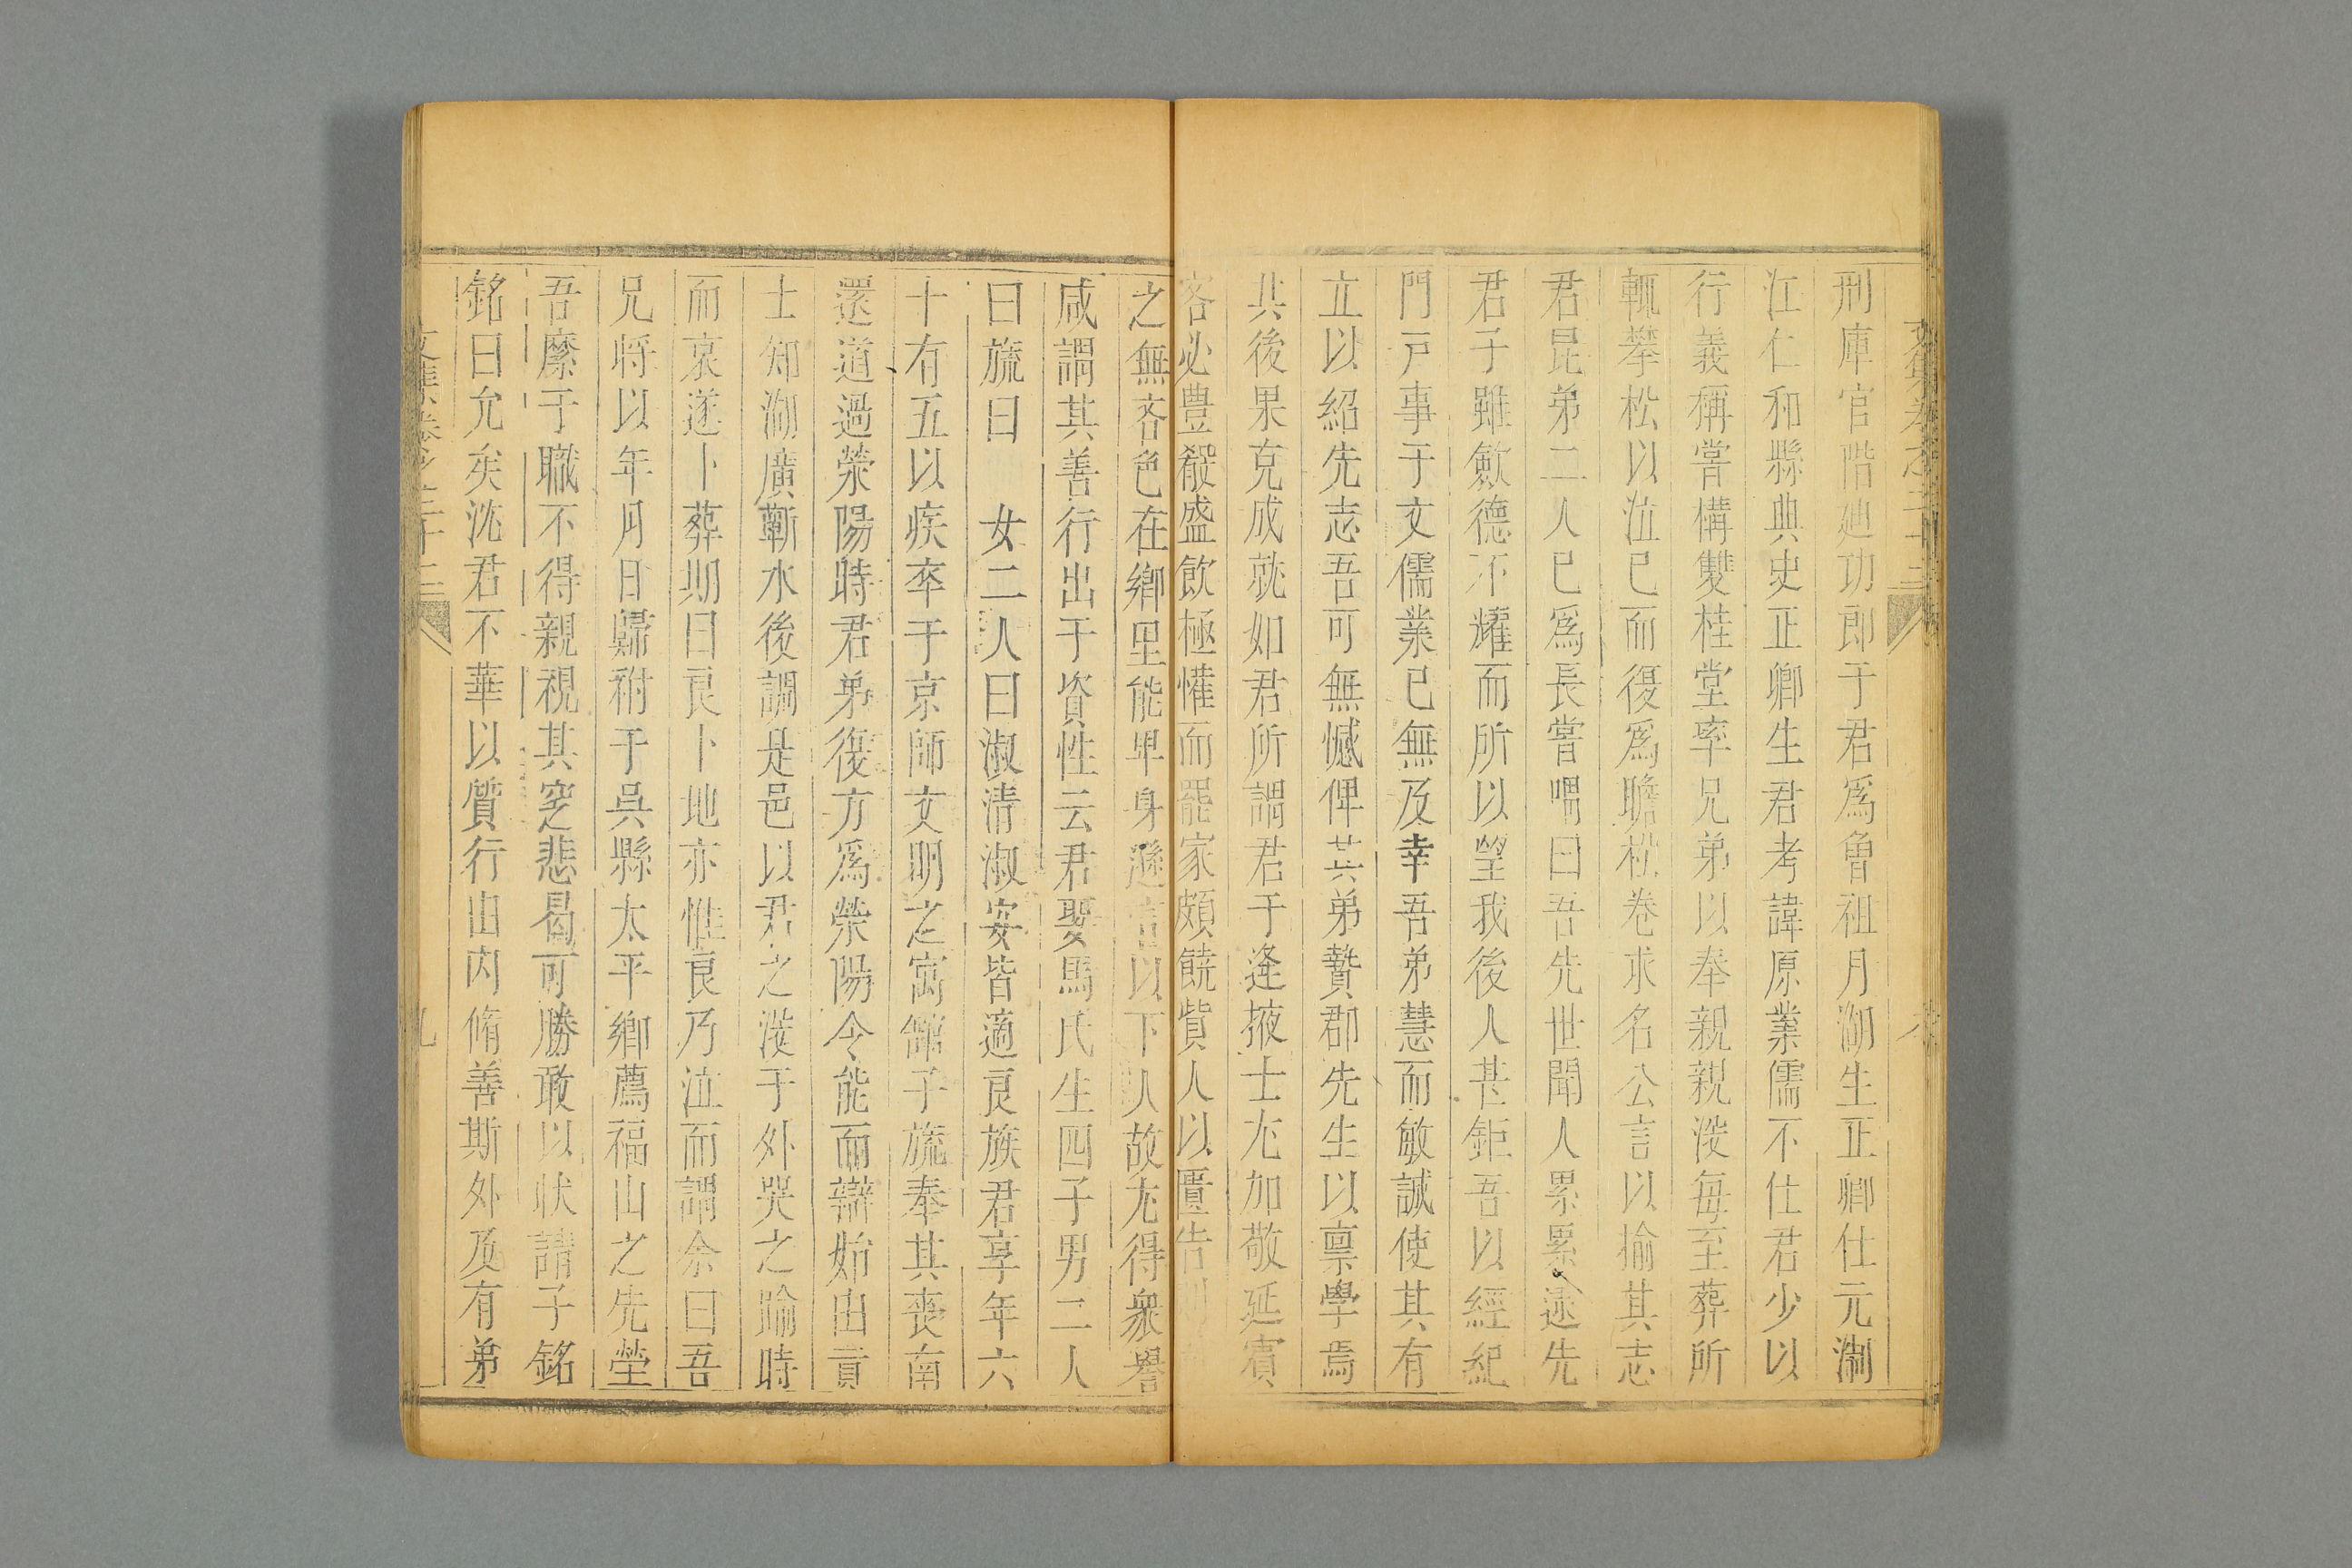 刑庫官階迪功郎于君爲曾祖月湖生正卿仕元淛
江仁和縣典史正卿生君考諱原業儒不仕君少以
行義稱嘗構雙桂堂率兄弟以奉親親歿每至葬所
輒攀松以泣已而復爲瞻松卷求名公言以揄其志
君昆弟二人已爲長嘗喟曰吾先世聞人累累逮先
君子雖斂德不耀而所以望我後人甚鉅吾以經紀
門戸事于文儒業已無及幸吾弟慧而敏誠使其有
立以紹先志吾可無憾俾其弟贄郡先生以禀學焉
其後果克成就如君所謂君于逢掖士尤加敬延賓
客必豊殽盛飲極懽而罷家頗饒貲人以匱告
之無吝色在鄉里能卑身遜言以下人故尤得衆譽
咸謂其善行出于資性云君娶馬氏生四子男二人
曰旒曰 女二人曰淑清淑安皆適良族君享年六
十有五以疾卒于京師文明之寓舘子旒奉其喪南
還道過滎陽時君弟復方爲滎陽令能而辯始由貢
士知湖廣蘄水後調是邑以君之歿于外哭之踰時
而哀遂卜葬期曰良卜地亦惟良乃泣而謂余曰吾
兄將以年月日歸祔于吳縣太平鄉薦福山之先塋
吾縻于職不得親視其窆悲曷可勝敢以狀請子銘
銘曰允矣沈君不華以質行由内脩善斯外及有弟
文集卷之二十三
九